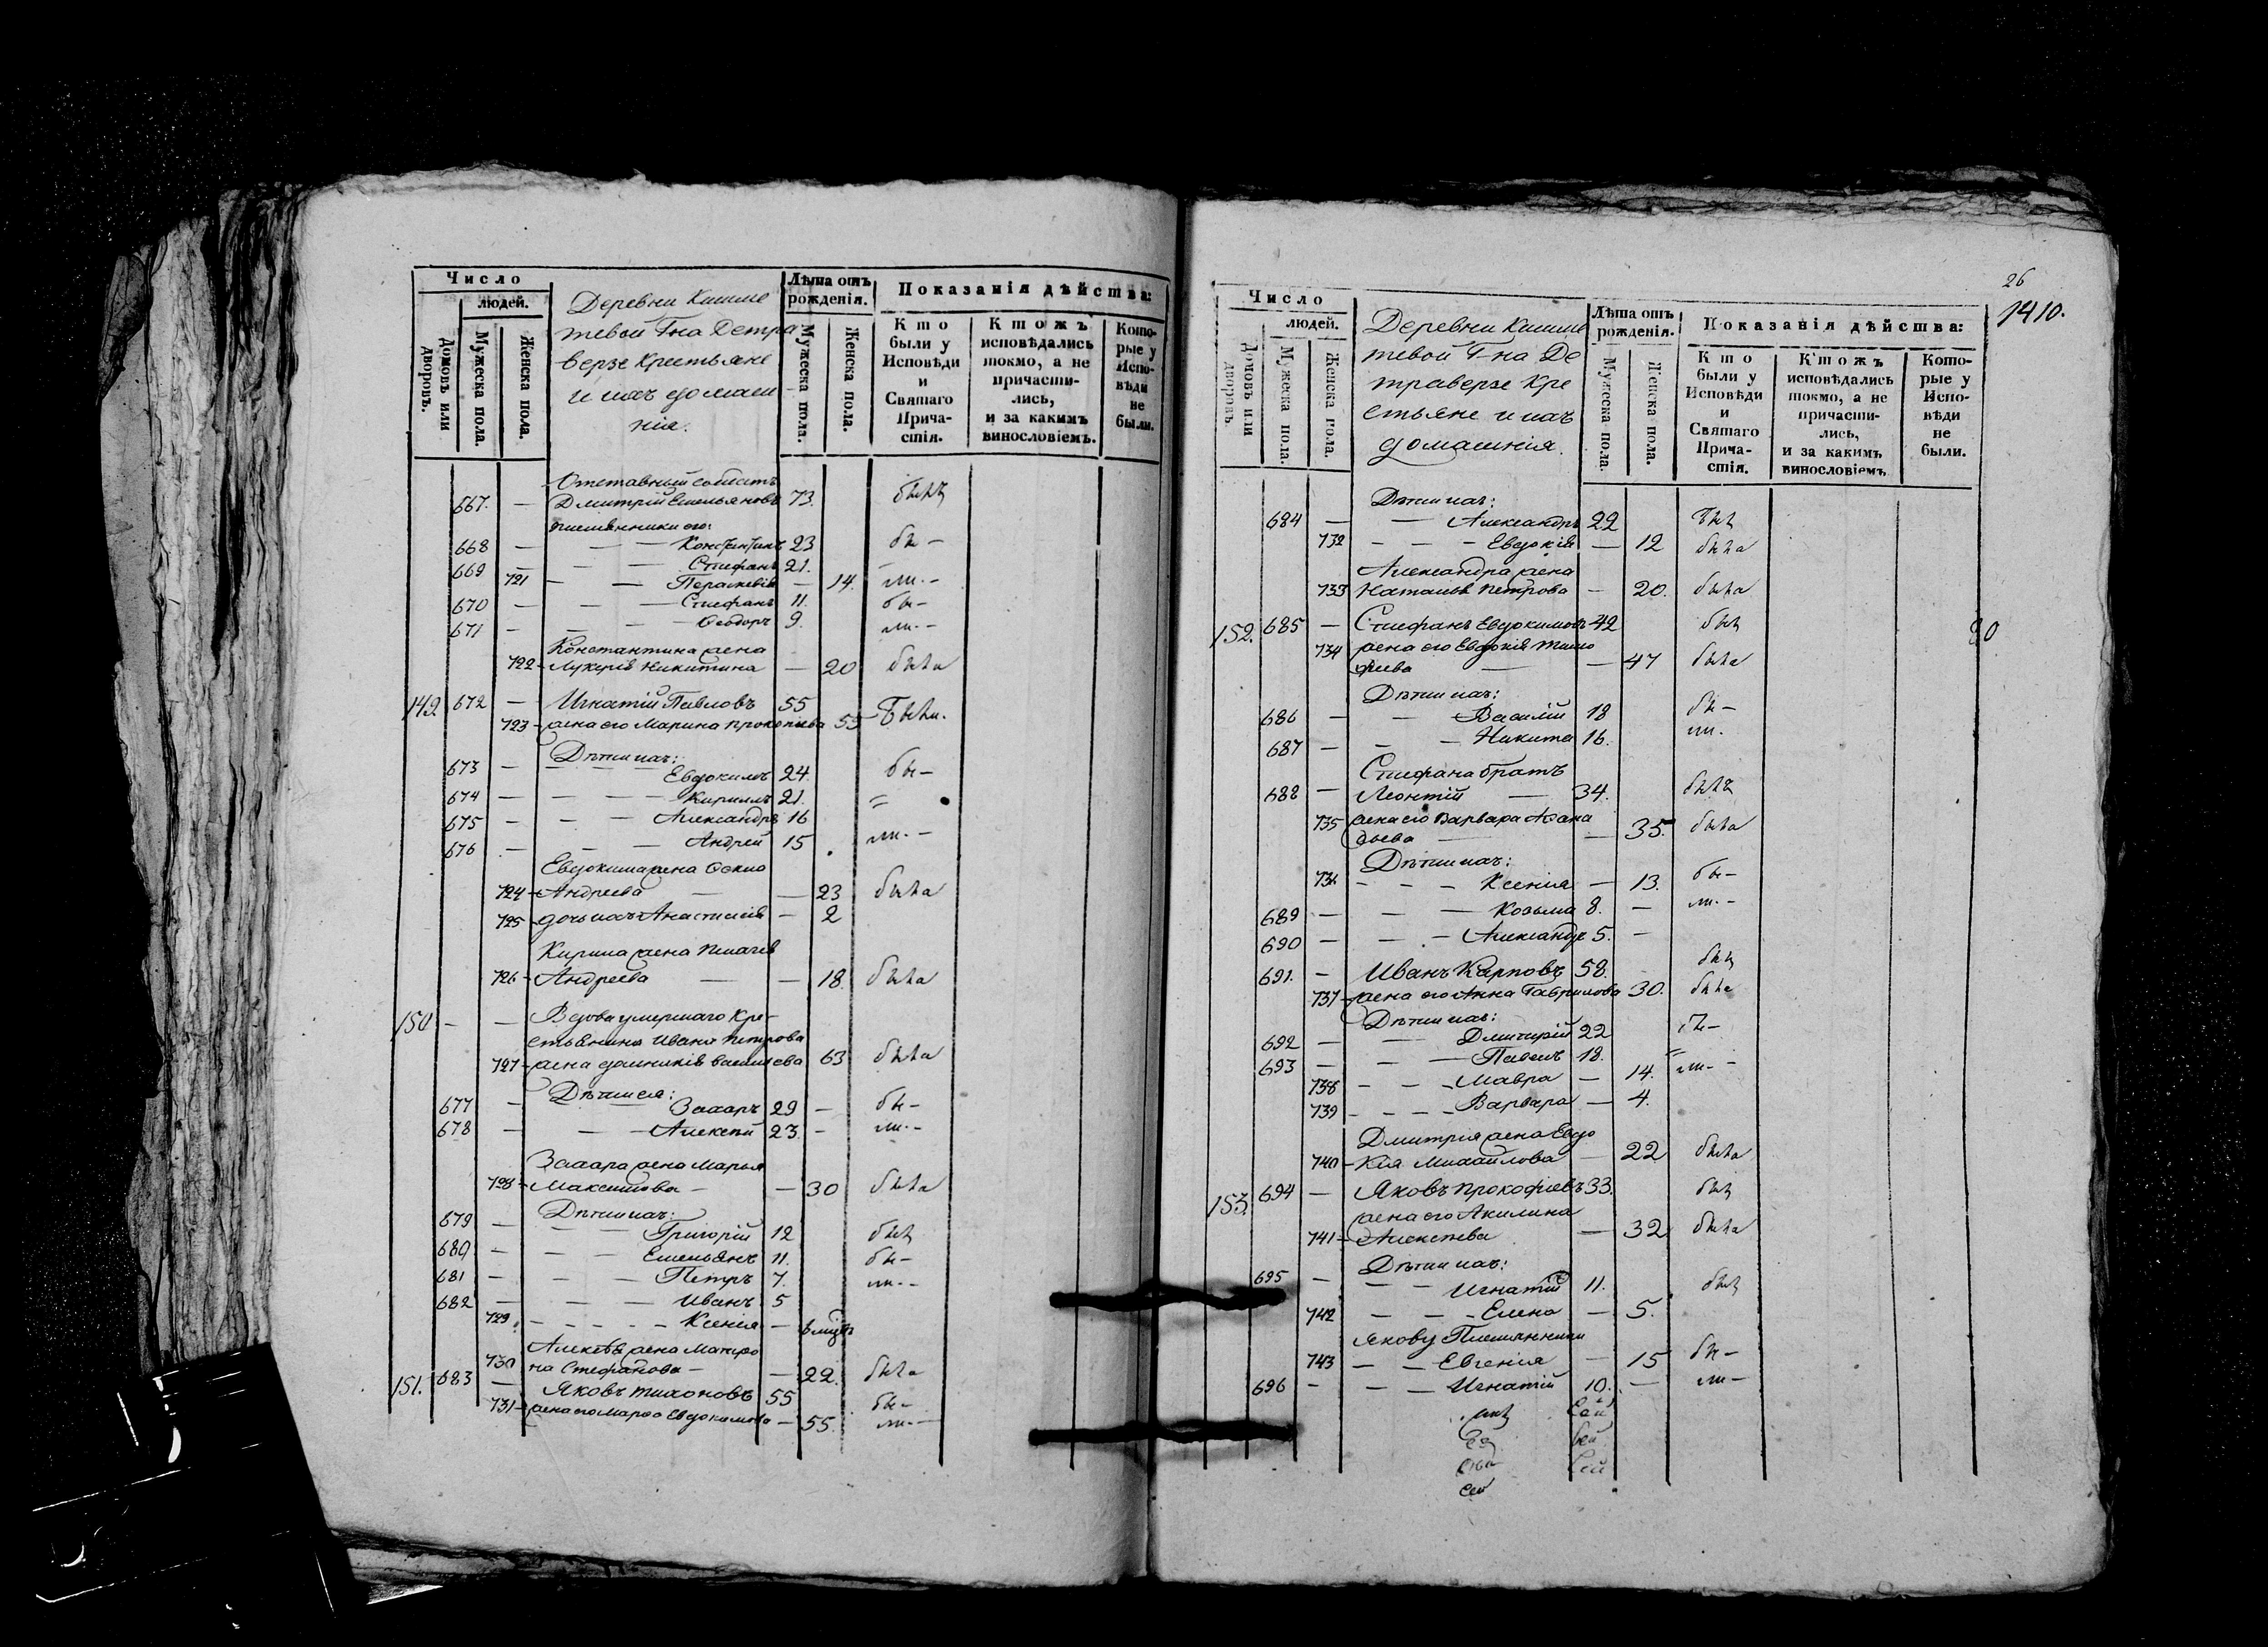 Число
людей.
Домовъ или дворовъ.
Мужеска пола.
Женска пола.
Деревни
тевой Гна Детра
верзе Крестьяне
и ихъ домаш
нія.
Лѣта отъ рожденія.
Мужеска пола.
Женска пола.
Показанія дѣйства:
Кто были у Исповѣди и Святаго Причастія.
Ктожъ исповѣдались токмо, а не причастились, и за какимъ винословіемъ.
Которые у Исповѣди не были.
Отставный солдатъ
667. — Дмитрій Емельяновъ 73. былъ
племянники его:
668 — — — Константинъ 23 бы —
669 — — — Стефанъ 21. —
721 — — Параскевія — 14. ли. —
670 — — — Стефанъ 11. бы —
671 — — — Ѳеодоръ 9. ли. —
Константина жена
722 — Лукерія Никитина — 20 была
149. 672 — Игнатій Павловъ 55
723 — жена его Марина Прокопіева 55 Были.
Дѣти ихъ:
673 — — — Евдокимъ 24. бы —
674 — — — Кириллъ 21. =
675 — — — Александръ 16
676 — — — Андрей 15 ли. —
Евдокима жена
724 — Андреева — — 23 была
725 — дочь ихъ Анастасія — 2
Кирила жена
726 — Андреева — — 18. была
150 — — Вдова умершаго Кре-
стьянина Ивана Петрова
727 — жена Домникія Васильева 63 была
Дѣти ея:
677 — — Захаръ 29 — бы —
678 — — — Алексѣй 23. — ли. —
Захара жена Марья
728 — Максимова — — 30 была
Дѣти ихъ:
679 — — — Григорій 12 былъ
680 — — — Емельянъ 11. бы —
681 — — — Петръ 7. ли. —
682 — — — Иванъ 5
729 — — — — Ксенія —
Алексѣя жена Матро
730 на Стефанова — — 22. была
151. 683 — Яковъ Тихоновъ 55 бы —
731 — жена его Марѳа Евдокимова — 55. ли. —
26
1410.
Число
людей.
Домовъ или дворовъ.
Мужеска пола.
Женска пола.
Деревни
тевой Г-на Де
траверзе Кре
стьяне и ихъ
домашнія.
Лѣта отъ рожденія.
Мужеска пола.
Женска пола.
Показанія дѣйства:
Кто были у Исповѣди и Святаго Причастія.
Ктожъ исповѣдались токмо, а не причастились, и за какимъ винословіемъ.
Которые у Исповѣди не были.
Дѣти ихъ:
684 — — Александръ 22 Былъ
732 — — — Евдокія — 12 была
Александра жена
733 Наталья Петрова — 20. была
152. 685 — Стефанъ Евдокимовъ 42 былъ
734 жена его Евдокія Тимо
фіева — — 47 была
Дѣти ихъ:
686 — — Василій 18 бы —
687 — — — Никита 16. ли.
Стефана братъ
688 — Леонтій — 34. былъ
735 жена его Варвара Аѳана
сьева — — 35. была
Дѣти ихъ:
736 — — — Ксенія — 13. бы —
689 — — — Козьма 8. — ли. —
690 — — — Александръ 5. —
691. — Иванъ Карповъ 58. былъ
737 — жена его Анна Гаврилова 30. была
Дѣти ихъ:
692 — — Дмитрій 22 бы —
693 — — — Павелъ 18. =
738 — — — Мавра — 14. ли. —
739 — — — — Варвара — 4.
Дмитрія жена Евдо
740 — кія Михайлова — 22 была
153. 694 — Яковъ Прокофіевъ 33. былъ
жена его Акилина
741 — Алексѣева — 32 была
Дѣти ихъ:
695 — — — Игнатій 11. былъ
742 — — — Елена — 5.
Якову Племянники
743 — — Евгенія — 15 бы —
696 — — — Игнатій 10. — ли —